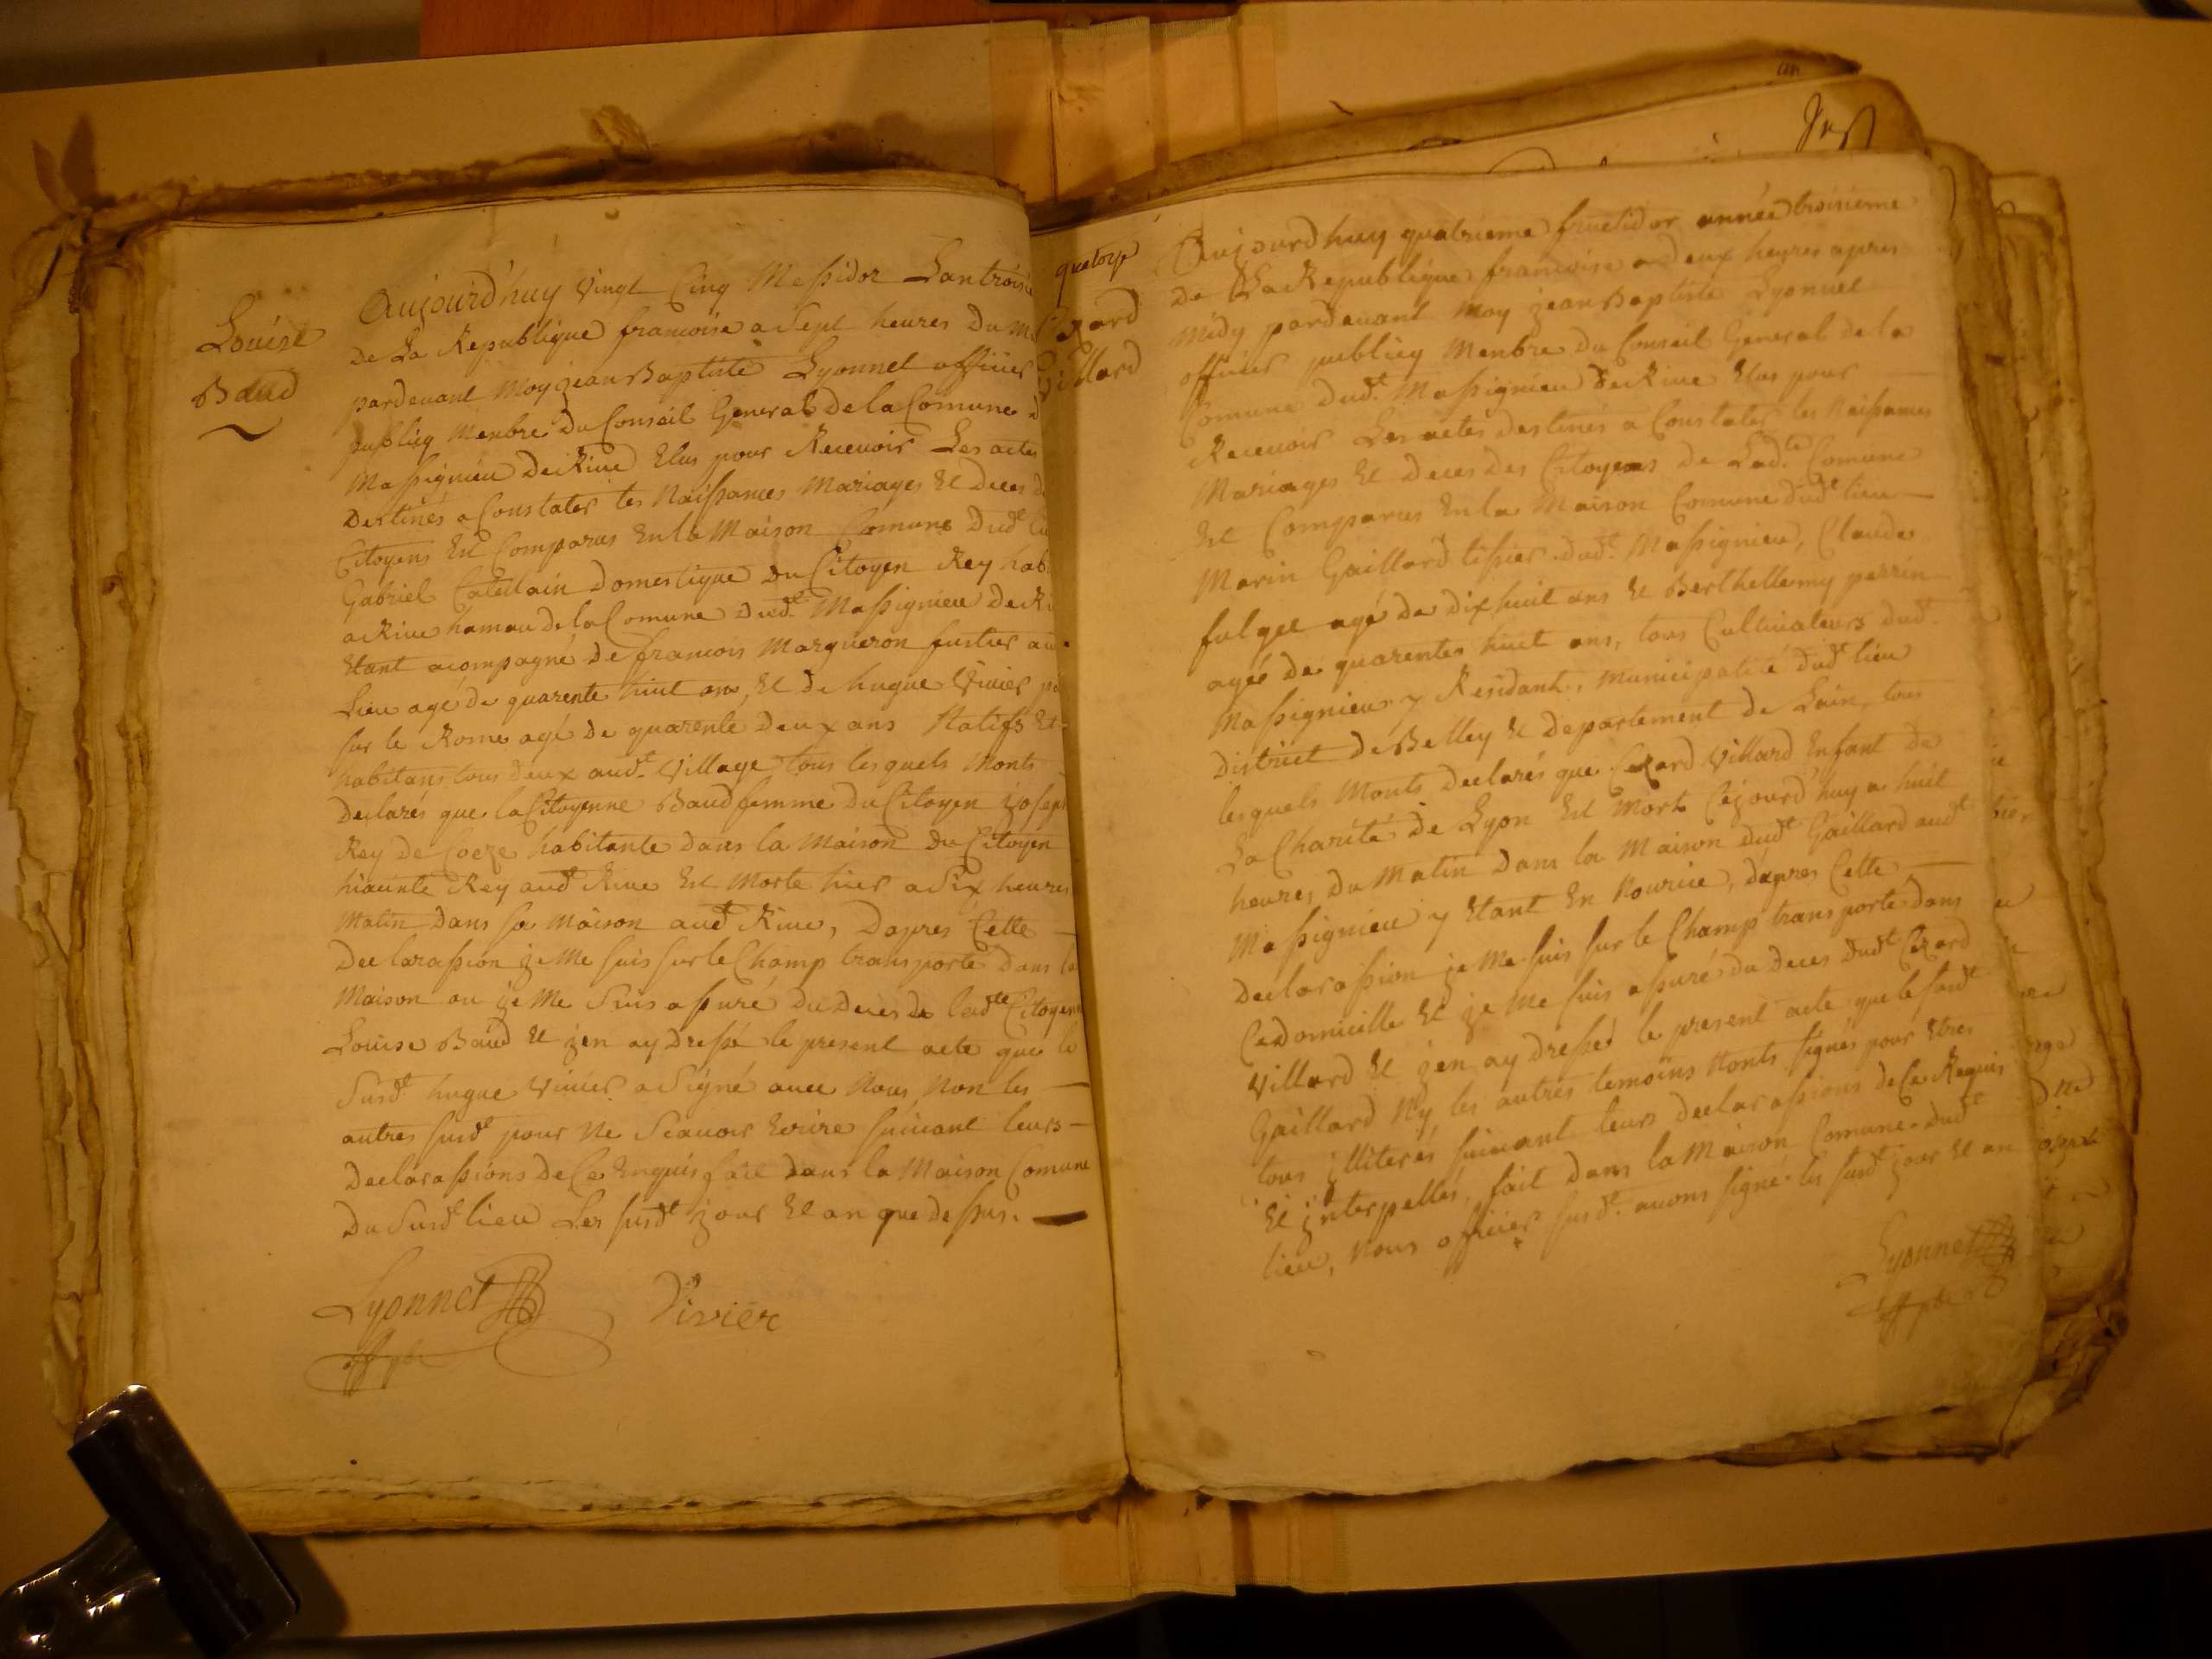 Louise
Baud
Aujourd'huy vingt Cinq Messidor Lantroisie
de La Republique francoise a Sept heures Du M
pardevant Moy jean Baptiste Lyonnet officier
publicq Menbre Du Conseil General de la Comune d
Massignieu de Rive Elus pour Recevoir Les actes
Destinés a Constater les Naissances Mariages Et Deces d
Citoyens Est Comparus En la Maison Comune Dudt
Gabriel Domestique Du Citoyen Rey hab
a Rive hamau de la Comune Dudt Massignieu de Ri
Etant acompagné De francois Margueron fustier au
Lieu agé de quarente huit ans, Et de hugue Vivier
sur le Rome agé de quarente Deux ans Natifs Et
habitans tous Deux audt. Village, tous lesquels Monts
Declarés que la Citoyenne Baud femme Du Citoyen joseph
Rey de Coeze habitante dans la Maison Du Citoyen
hiacinte Rey audt Rive Est Morte hier a Six heures
Matin Dans sa Maison audt Rive, Dapres Cette
Declarassion je Me suis sur le Champ transporté Dans la
Maison ou je Me Suis assuré du Deces de ladte Citoyenne
Louise Baud Et jen ay Dressé le present acte que le
Susdt hugue Vivier a Signé avec Nous, Non les
autres susdt pour Ne Scavoir Ecrire suivant leurs
Declarassions de Ce Enquis fait dans la Maison Comune
Du Susdt lieu Les susdt jour Et an que dessus.
Lyonnet Vivier
quatorze
Cezard
Villard
Aujourdhuy quatrieme fructidor année troisieme
de La Republique francoise a deux heures apres
Midy pardevant Moy jean Baptiste Lyonnet
officier publicq Menbre du Conseil General de la
Comune dudt. Massignieu de Rive Elus pour
Recevoir Les actes destinés a Constater les Naissances
Mariages Et deces des Citoyens de Ladte Comune
Est Comparus En la Maison Comune dudt lieu
Marin Gaillard tissier dudt. Massignieu, Claude
agé de dixhuit ans Et Berthellemy perrin
agés de quarentes huit ans, tous Cultivateurs dudt.
Massignieu y Residant, Municipalité dudt lieu
district de Belley Et departement de Lain, tous
lesquels Monts declarés que Cezard Villard Enfant de
La Charité de Lyon Est Mort Cejourd'huy a huit
heures Du Matin Dans la Maison dudt Gaillard audt
Massignieu y Etant En Nourice, dapres Cette
Declarassion je Me suis sur le Champ transporté dans
Ce domicille Et je Me suis assuré du deces dudt Cezard
Villard Et jen ay dressé le present acte que le susdt
Gaillard Ny, les autres temoins Nonts signés pour Etres
tous jlliterés suivant leurs declarassions de Ce Requis
Et jnterpellés, fait dans la Maison Comune dudt
lieu, Nous officier susdt. avons signé les susdt jour Et an
Lyonnet